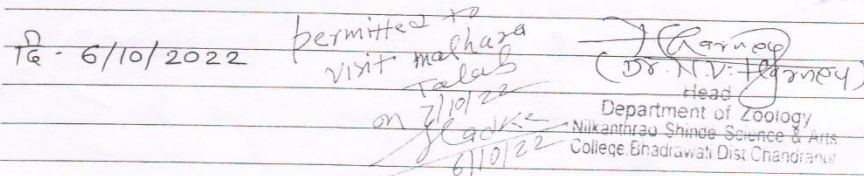 दि - 6/10/2022
permitted to
visit malhara
Talab
on 7/10/22
6/10/22
(Dr. N.V. Harney)
Head
Department of Zoology
Nilkanthrao Shinde Science & Arts
College, Bhadrawati Dist Chandrapur